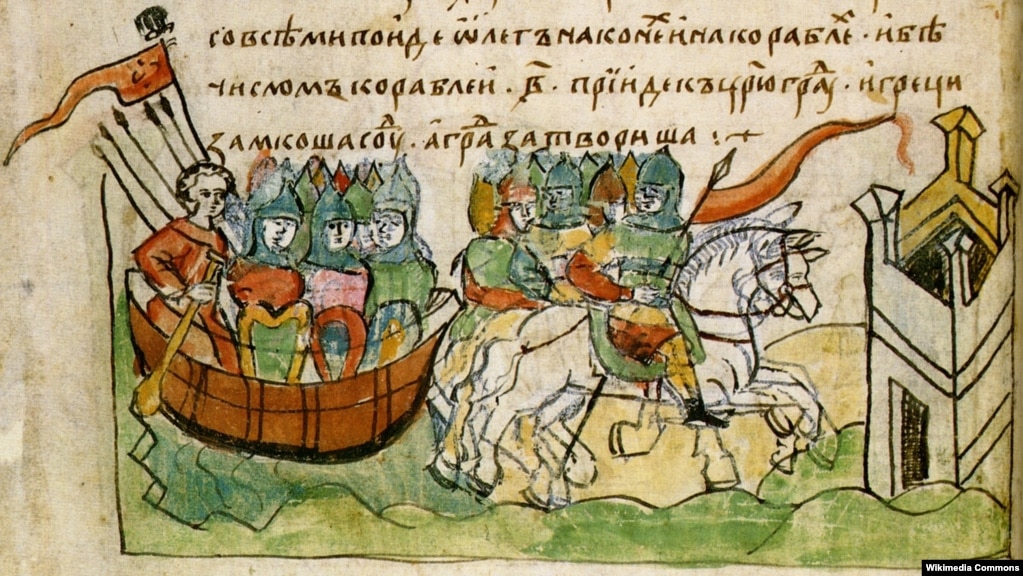 со всѣми поиде ѡлегъ на конех и на кораблех · и бѣ
числомъ кораблей · в҃ · прїиде къ црюграду · и греци
замкоша соуд · а град затвориша :+
Wikimedia Commons